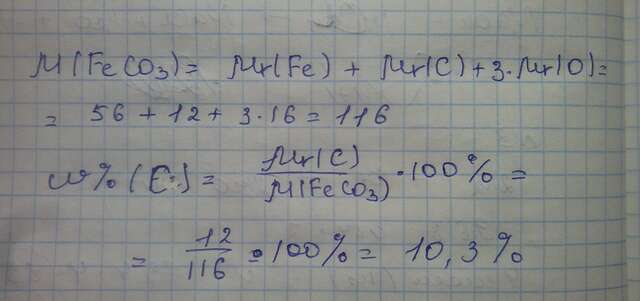 M(FeCO₃) = Mr(Fe) + Mr(C) + 3·Mr(O) =
= 56 + 12 + 3·16 = 116
w%(C) = Mr(C)/M(FeCO₃) · 100% =
= 12/116 · 100% = 10,3%